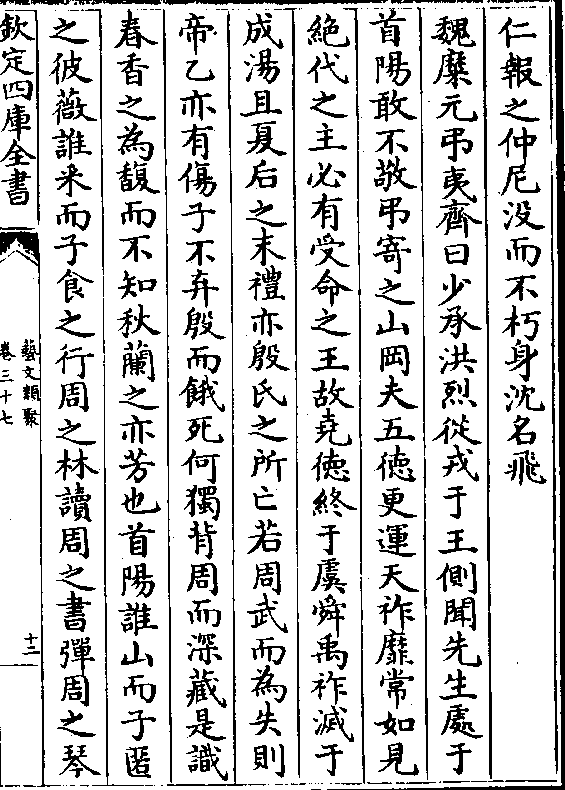 仁報之仲尼没而不朽身沈名飛
魏糜元弔夷齊曰少承洪烈從戎于王側聞先生處于
首陽敢不敬弔寄之山岡夫五徳更運天祚靡常如見
絶代之主必有受命之王故堯徳終于虞舜禹祚滅于
成湯且夏后之末禮亦殷氏之所亡若周武而為失則
帝乙亦有傷子不弃殷而餓死何獨背周而深藏是識
春香之為馥而不知秋蘭之亦芳也首陽誰山而子匿
之彼薇誰采而子食之行周之林讀周之書彈周之琴
欽定四庫全書
藝文類聚
卷三十七
十三